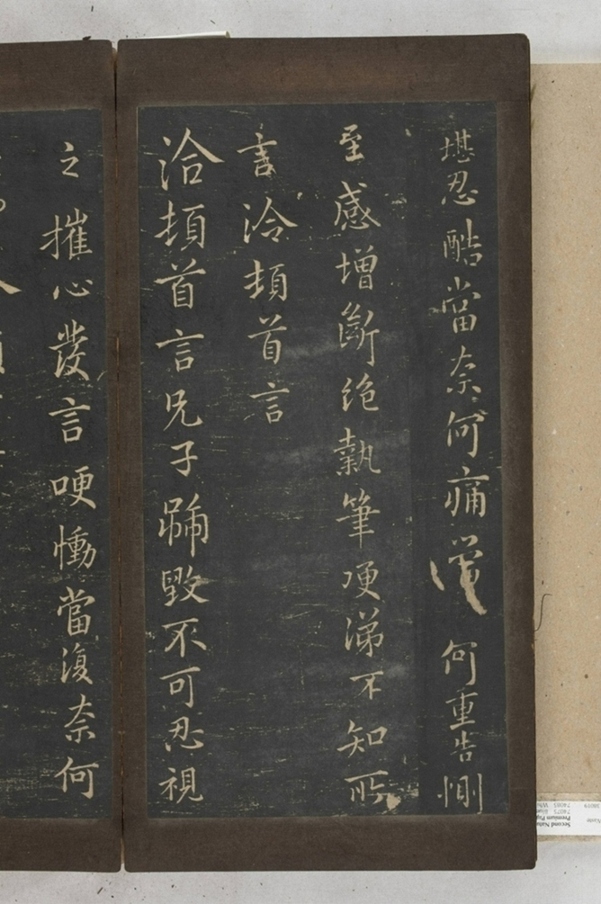 堪忍酷當奈何痛當何重告惻
至感增斷絕執筆哽涕不知所
言洽頓首言
洽頓首言兄子號毀不可忍視
之摧心發言哽慟當復奈何